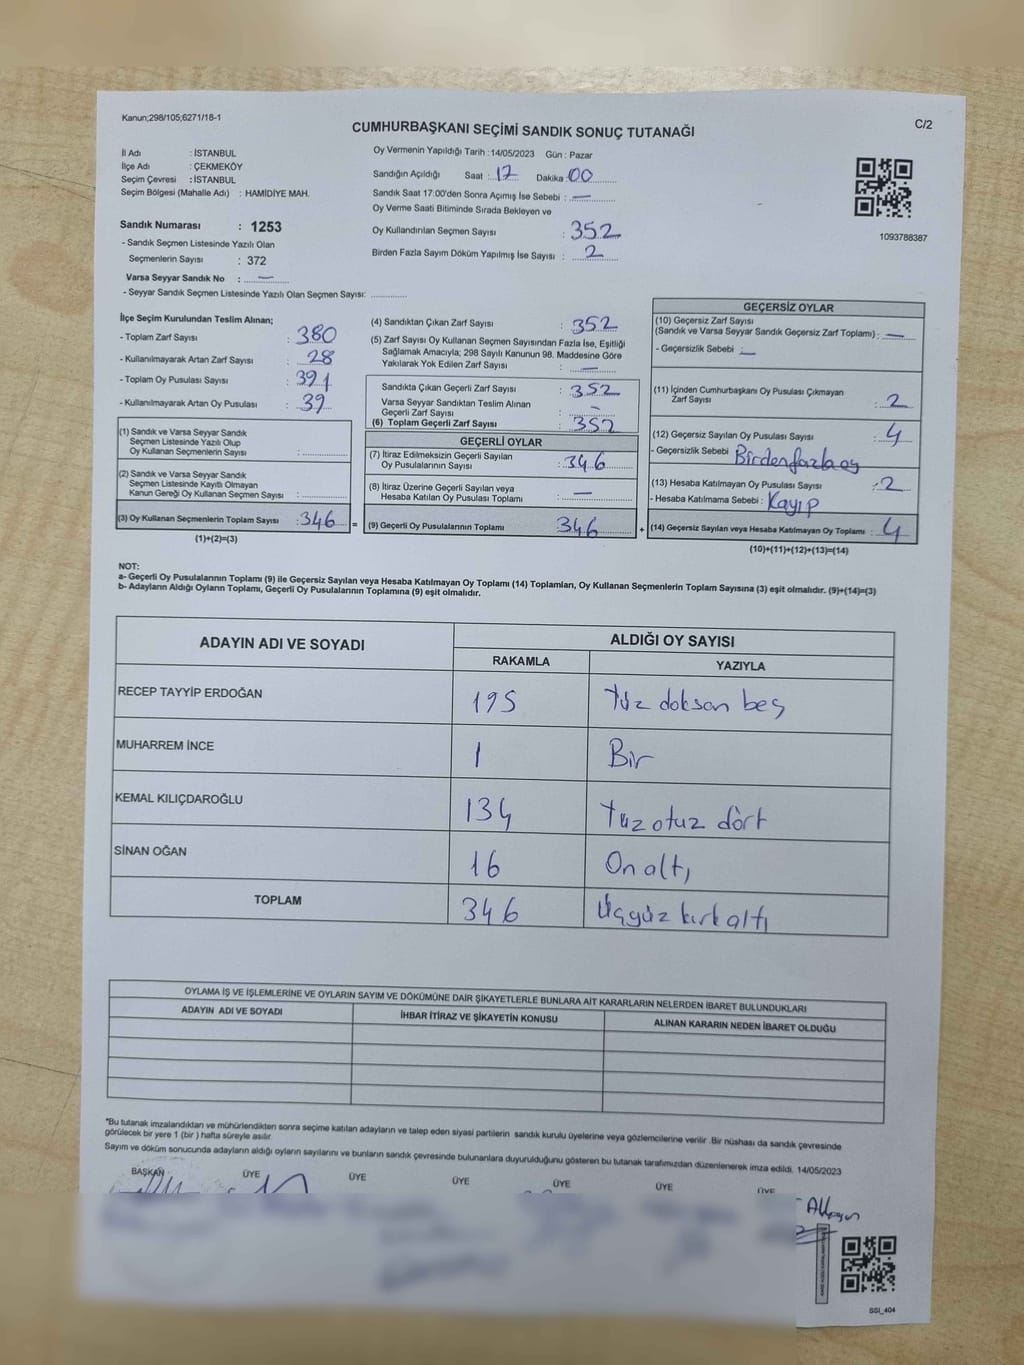 Kanun;298/105;6271/18-1
C/2
CUMHURBAŞKANI SEÇİMİ SANDIK SONUÇ TUTANAĞI
İl Adı : İSTANBUL
İlçe Adı : ÇEKMEKÖY
Seçim Çevresi : İSTANBUL
Seçim Bölgesi (Mahalle Adı) : HAMİDİYE MAH.
Sandık Numarası : 1253
- Sandık Seçmen Listesinde Yazılı Olan
Seçmenlerin Sayısı : 372
Varsa Seyyar Sandık No : —
- Seyyar Sandık Seçmen Listesinde Yazılı Olan Seçmen Sayısı: ............
Oy Vermenin Yapıldığı Tarih : 14/05/2023 Gün : Pazar
Sandığın Açıldığı Saat : 17 Dakika : 00
Sandık Saat 17:00'den Sonra Açımış İse Sebebi : —
Oy Verme Saati Bitiminde Sırada Bekleyen ve
Oy Kullandırılan Seçmen Sayısı : 352
Birden Fazla Sayım Döküm Yapılmış İse Sayısı : 2
1093788387
İlçe Seçim Kurulundan Teslim Alınan;
- Toplam Zarf Sayısı : 380
- Kullanılmayarak Artan Zarf Sayısı : 28
- Toplam Oy Pusulası Sayısı : 391
- Kullanılmayarak Artan Oy Pusulası : 39
(1) Sandık ve Varsa Seyyar Sandık
Seçmen Listesinde Yazılı Olup
Oy Kullanan Seçmenlerin Sayısı :
(2) Sandık ve Varsa Seyyar Sandık
Seçmen Listesinde Kayıtlı Olmayan
Kanun Gereği Oy Kullanan Seçmen Sayısı :
(3) Oy Kullanan Seçmenlerin Toplam Sayısı : 346 =
(1)+(2)=(3)
(4) Sandıktan Çıkan Zarf Sayısı : 352
(5) Zarf Sayısı Oy Kullanan Seçmen Sayısından Fazla İse, Eşitliği
Sağlamak Amacıyla; 298 Sayılı Kanunun 98. Maddesine Göre
Yakılarak Yok Edilen Zarf Sayısı : —
Sandıkta Çıkan Geçerli Zarf Sayısı : 352
Varsa Seyyar Sandıktan Teslim Alınan
Geçerli Zarf Sayısı : -
(6) Toplam Geçerli Zarf Sayısı : 352
GEÇERLİ OYLAR
(7) İtiraz Edilmeksizin Geçerli Sayılan
Oy Pusulalarının Sayısı : 346
(8) İtiraz Üzerine Geçerli Sayılan veya
Hesaba Katılan Oy Pusulası Toplamı : —
(9) Geçerli Oy Pusulalarının Toplamı 346 +
GEÇERSİZ OYLAR
(10) Geçersiz Zarf Sayısı
(Sandık ve Varsa Seyyar Sandık Geçersiz Zarf Toplamı) : —
- Geçersizlik Sebebi : —
(11) İçinden Cumhurbaşkanı Oy Pusulası Çıkmayan
Zarf Sayısı : 2
(12) Geçersiz Sayılan Oy Pusulası Sayısı : 4
- Geçersizlik Sebebi : Birden fazla oy
(13) Hesaba Katılmayan Oy Pusulası Sayısı : 2
- Hesaba Katılmama Sebebi : Kayıp
(14) Geçersiz Sayılan veya Hesaba Katılmayan Oy Toplamı : 4
(10)+(11)+(12)+(13)=(14)
NOT:
a- Geçerli Oy Pusulalarının Toplamı (9) ile Geçersiz Sayılan veya Hesaba Katılmayan Oy Toplamı (14) Toplamları, Oy Kullanan Seçmenlerin Toplam Sayısına (3) eşit olmalıdır. (9)+(14)=(3)
b- Adayların Aldığı Oyların Toplamı, Geçerli Oy Pusulalarının Toplamına (9) eşit olmalıdır.
ADAYIN ADI VE SOYADI ALDIĞI OY SAYISI
RAKAMLA YAZIYLA
RECEP TAYYİP ERDOĞAN 195 Yüz doksan beş
MUHARREM İNCE 1 Bir
KEMAL KILIÇDAROĞLU 134 Yüz otuz dört
SİNAN OĞAN 16 On altı
TOPLAM 346 Üçyüz kırk altı
OYLAMA İŞ VE İŞLEMLERİNE VE OYLARIN SAYIM VE DÖKÜMÜNE DAİR ŞİKAYETLERLE BUNLARA AİT KARARLARIN NELERDEN İBARET BULUNDUKLARI
ADAYIN ADI VE SOYADI İHBAR İTİRAZ VE ŞİKAYETİN KONUSU ALINAN KARARIN NEDEN İBARET OLDUĞU
*Bu tutanak imzalandıktan ve mühürlendikten sonra seçime katılan adayların ve talep eden siyasi partilerin sandık kurulu üyelerine veya gözlemcilerine verilir .Bir nüshası da sandık çevresinde
görülecek bir yere 1 (bir ) hafta süreyle asılır.
Sayım ve döküm sonucunda adayların aldığı oyların sayılarını ve bunların sandık çevresinde bulunanlara duyurulduğunu gösteren bu tutanak tarafımızdan düzenlenerek imza edildi. 14/05/2023
BAŞKAN ÜYE ÜYE ÜYE ÜYE ÜYE ÜYE
SSI_404